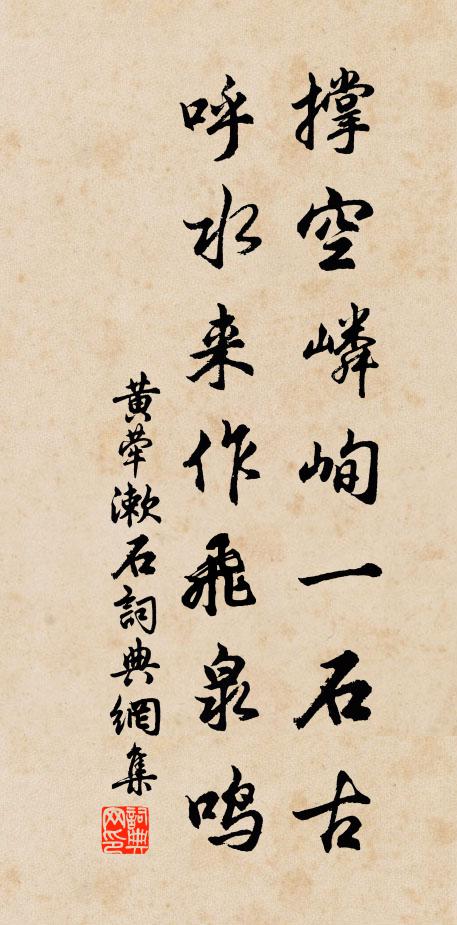 撑空嶙峋一石古
呼水来作飛泉鸣
黄荦漱石詞典網集
詞典网印